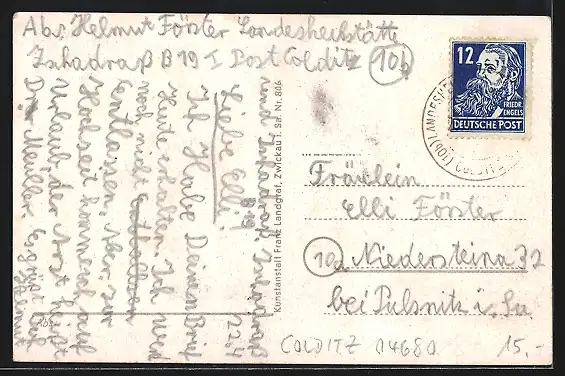 Abs. Helmut Förster Landesheilstätte
Zschadraß B 19 I Post Colditz (10b)
Zschadraß
B 19 22.4
Liebe Elli!
Ich Habe Deinen Brief
Heute erhalten. Ich werd
noch nicht entlassen
Entlassen, Aber zur
Hochzeit komme ich auf
Urlaub, der Arzt heißt
Dr. Meuller. Es grüßt Dich
Helmut
Kunstanstalt Franz Landgraf, Zwickau i. Sa. Nr. 806
12
FRIEDR.
ENGELS
DEUTSCHE POST
(10b) LANDESHE
COLDITZ
Fräulein
Elli Förster
(10a) Niedersteina 32
bei Pulsnitz i. Sa.
Abs.:
COLDITZ 04680 15,-